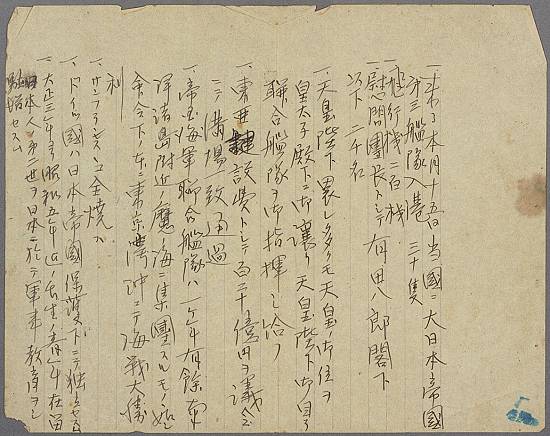 一、来る本月十五日当国ニ大日本帝國
第三艦隊入港 三十隻
飛行機二百機
一、慰問團長トシテ有田八郎閣下
以下 二千名
一、天皇陛下畏レ多クモ天皇御位ヲ
皇太子殿下ニ御讓リ天皇陛下御自ラ
聯合艦隊ヲ御指揮シ給フ
一、東亜建設費トシテ百二十億円ヲ議会
ニテ満場一致通過
一、帝国海軍聯合艦隊ハ一ヶ年有餘南
洋諸島附近ノ鷹ノ海ニ集團スルモノノ如
命令下ノ本ニ東京湾沖ニテ海戦大勝
利
一、サンフランシスコ全焼ス
一、ドイツ國ハ日本帝國保護下ニテ独立セム
一、大正三年ヨリ昭和五年迄ノ出生ノ青年在留
日本人第二世ヲ日本ニ於テ軍事教育ヲシ
駐屯セシム